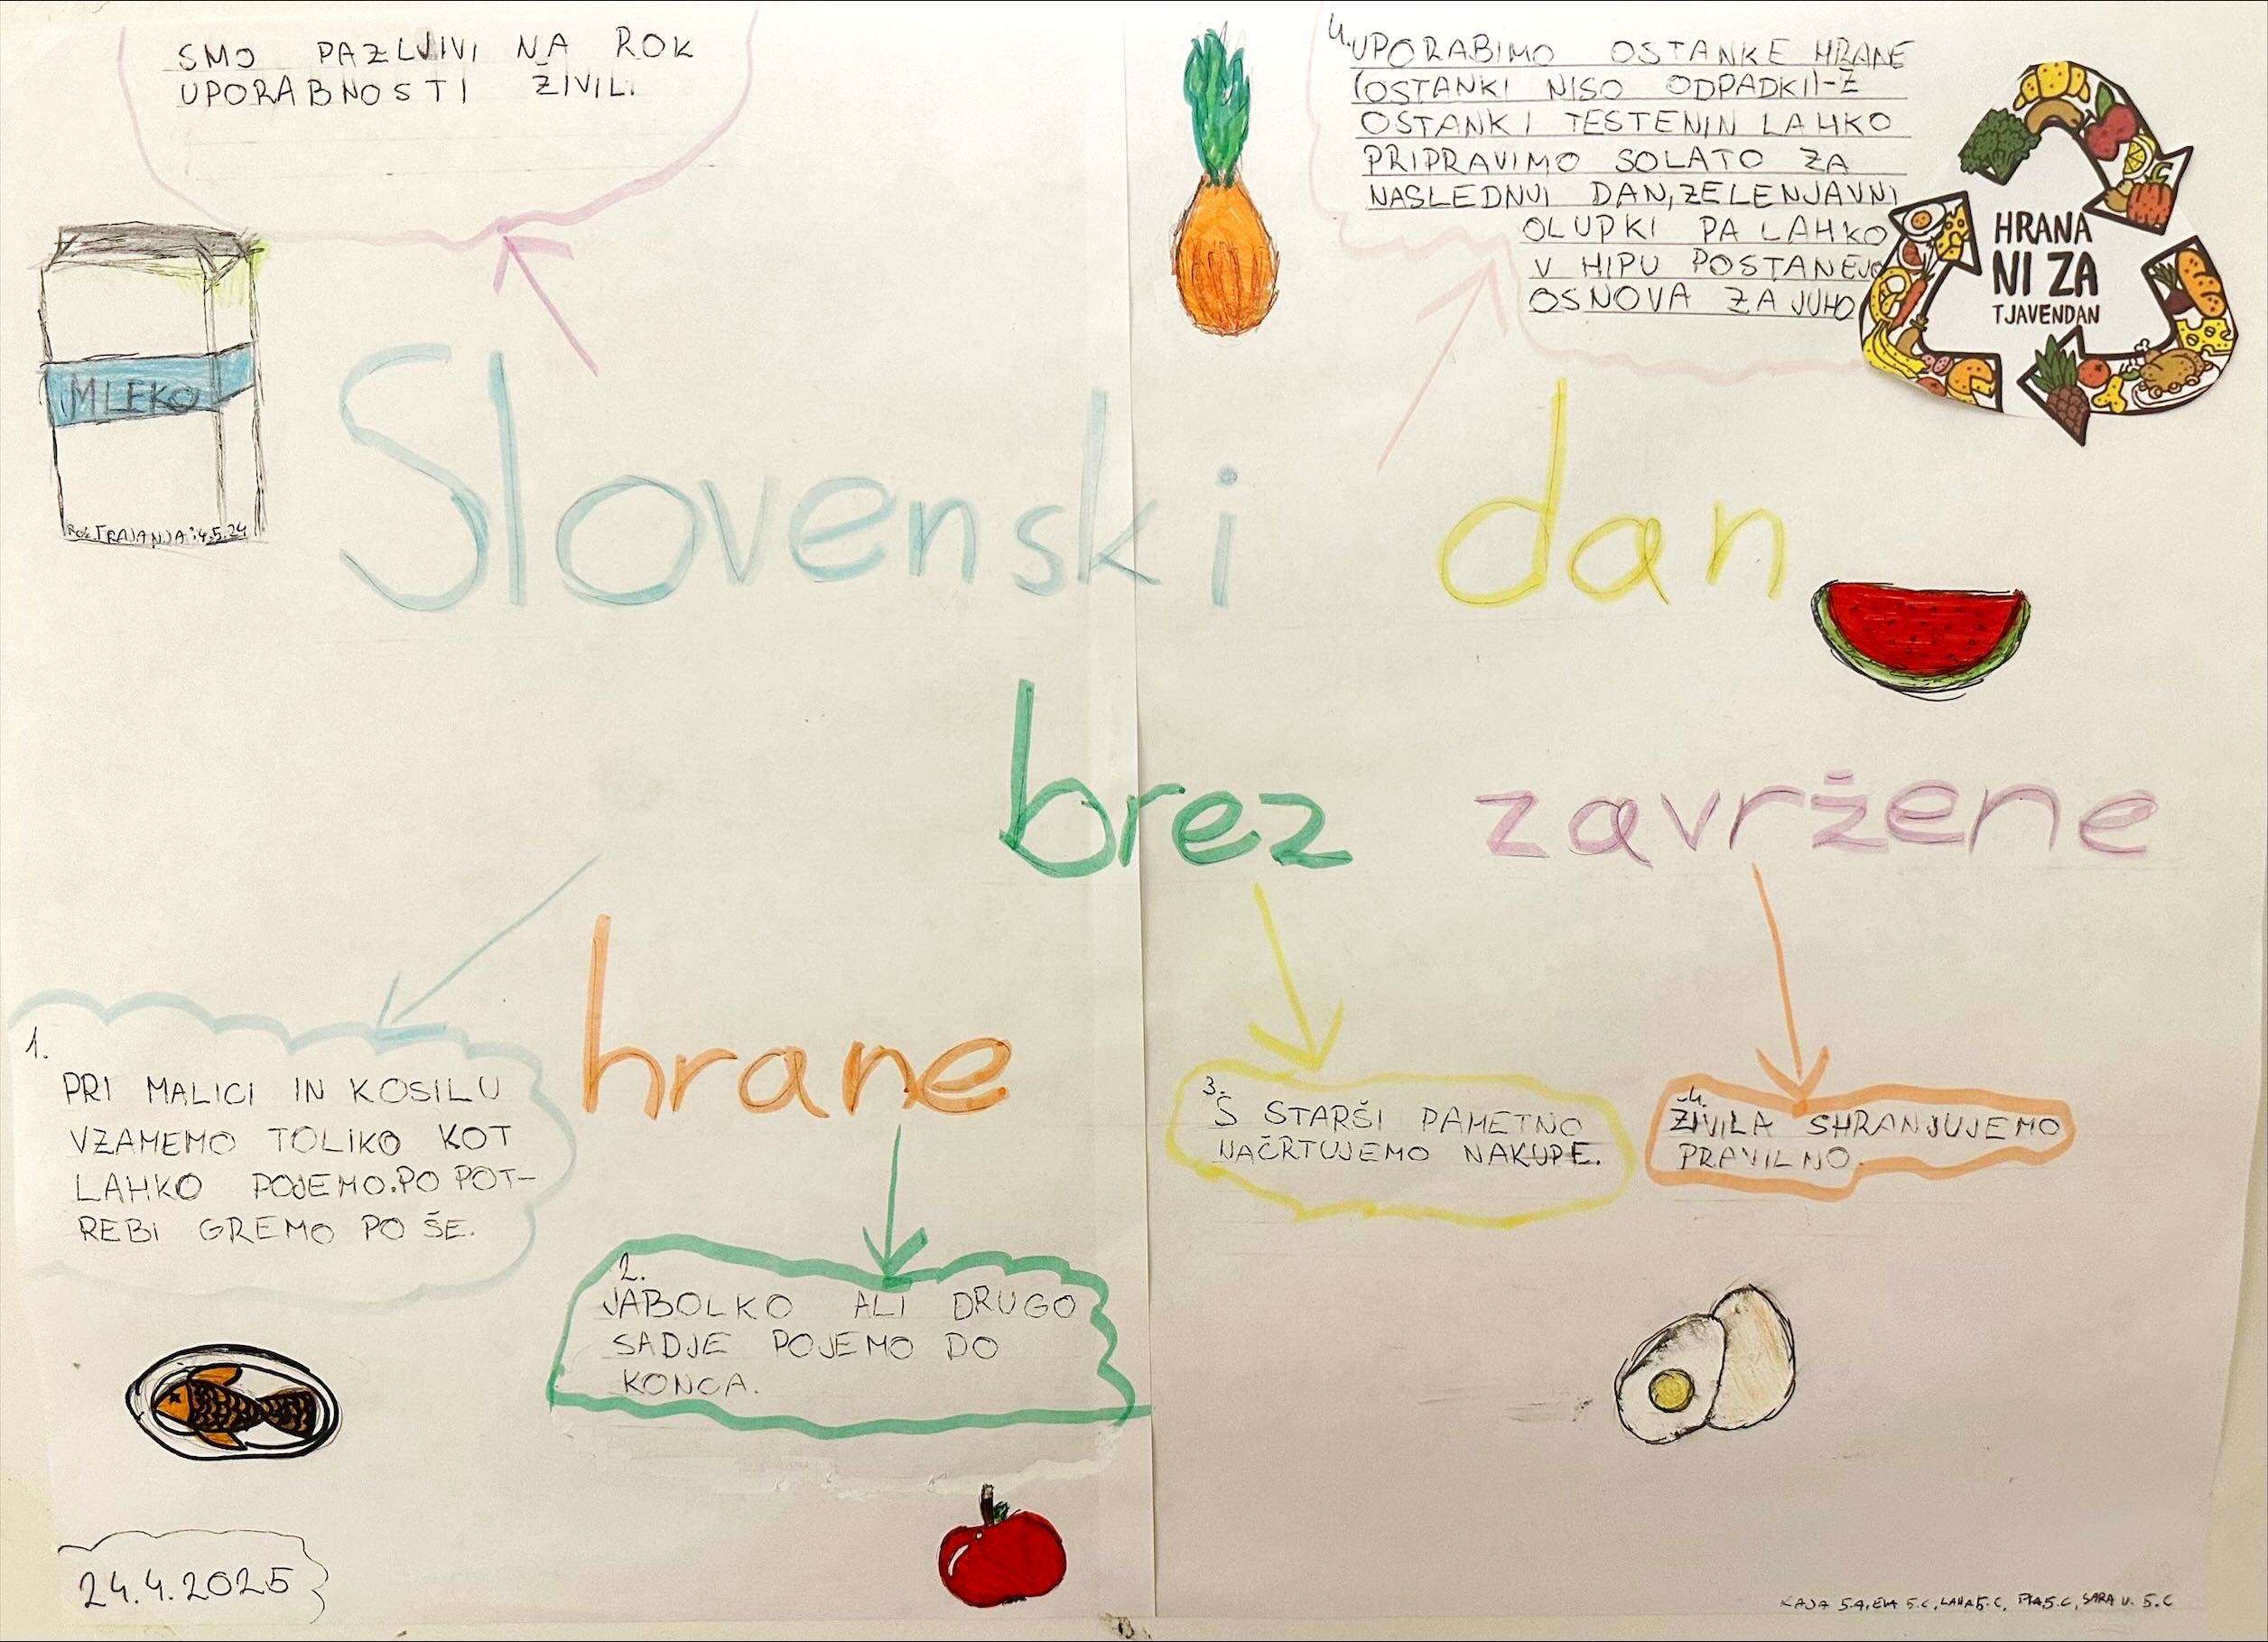 SMO PAZLJIVI NA ROK
UPORABNOSTI ŽIVIL.
4. UPORABIMO OSTANKE HRANE
(OSTANKI NISO ODPADKI)-Z
OSTANKI TESTENIN LAHKO
PRIPRAVIMO SOLATO ZA
NASLEDNJI DAN, ZELENJAVNI
OLUPKI PA LAHKO
V HIPU POSTANEJO
OSNOVA ZA JUHO
HRANA
NI ZA
TJAVENDAN
MLEKO
ROK TRAJANJA: 4.5.24
Slovenski dan
brez zavržene
hrane
1.
PRI MALICI IN KOSILU
VZAMEMO TOLIKO KOT
LAHKO POJEMO. PO POT-
REBI GREMO PO ŠE.
2.
JABOLKO ALI DRUGO
SADJE POJEMO DO
KONCA.
3.
S STARŠI PAMETNO
NAČRTUJEMO NAKUPE.
4.
ŽIVILA SHRANJUJEMO
PRAVILNO.
24.4.2025
KAJA 5.A, EVA 5.C, LANA 5.C, PIA 5.C, SARA V. 5.C